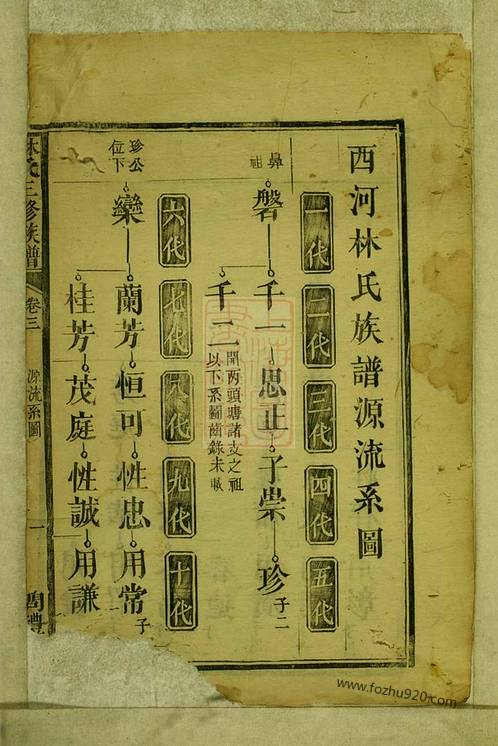 西河林氏族譜源流系圖
一代 二代 三代 四代 五代
鼻祖
磐 千一 思正 子崇 珍 子二
千二 開兩頭塘諸支之祖
以下系圖
六代 七代 八代 九代 十代
珍公位下
欒 蘭芳 恒可 性忠 用常 子
桂芳 茂庭 性誠 用謙
林氏三修族譜 卷三 源流系圖 一
www.fozhu920.com